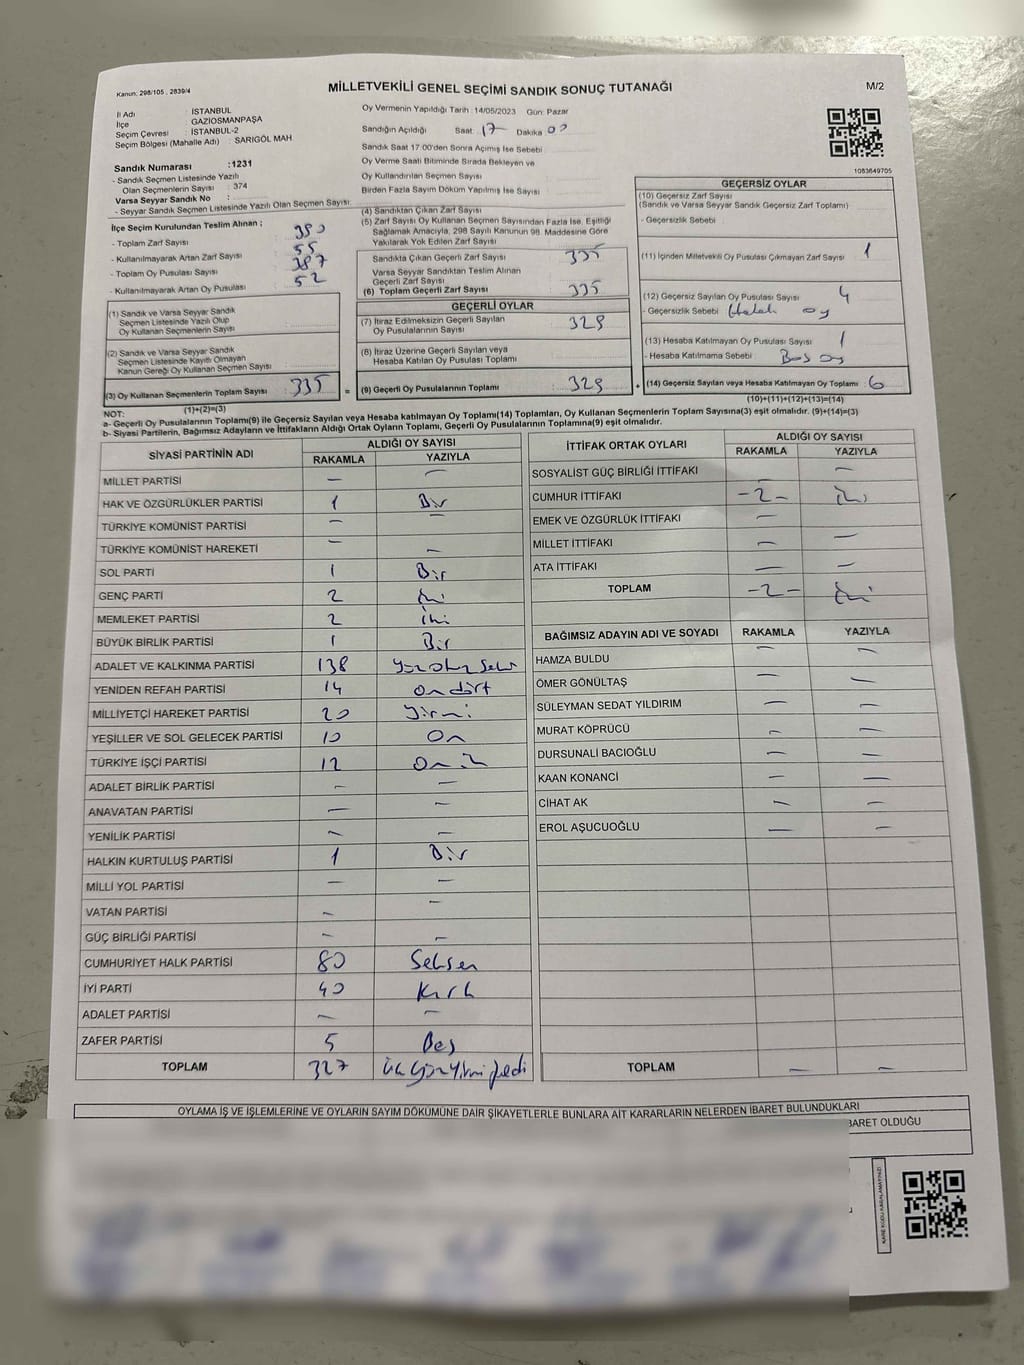 Kanun: 298/105 , 2839/4
MİLLETVEKİLİ GENEL SEÇİMİ SANDIK SONUÇ TUTANAĞI
M/2
İl Adı : İSTANBUL
İlçe : GAZİOSMANPAŞA
Seçim Çevresi : İSTANBUL-2
Seçim Bölgesi (Mahalle Adı) : SARIGÖL MAH
Sandık Numarası :1231
- Sandık Seçmen Listesinde Yazılı
Olan Seçmenlerin Sayısı : 374
Varsa Seyyar Sandık No :
- Seyyar Sandık Seçmen Listesinde Yazılı Olan Seçmen Sayısı:
Oy Vermenin Yapıldığı Tarih : 14/05/2023 Gün: Pazar
Sandığın Açıldığı Saat: 17 Dakika 00
Sandık Saat 17:00'den Sonra Açmış İse Sebebi :
Oy Verme Saati Bitiminde Sırada Bekleyen ve
Oy Kullandırılan Seçmen Sayısı :
Birden Fazla Sayım Döküm Yapılmış İse Sayısı :
1083649705
İlçe Seçim Kurulundan Teslim Alınan ;
- Toplam Zarf Sayısı : 390
- Kullanılmayarak Artan Zarf Sayısı : 55
- Toplam Oy Pusulası Sayısı : 387
- Kullanılmayarak Artan Oy Pusulası : 52
(1) Sandık ve Varsa Seyyar Sandık
Seçmen Listesinde Yazılı Olup
Oy Kullanan Seçmenlerin Sayısı :
(2) Sandık ve Varsa Seyyar Sandık
Seçmen Listesinde Kayıtlı Olmayan
Kanun Gereği Oy Kullanan Seçmen Sayısı :
(3) Oy Kullanan Seçmenlerin Toplam Sayısı : 335
(1)+(2)=(3)
(4) Sandıktan Çıkan Zarf Sayısı
(5) Zarf Sayısı Oy Kullanan Seçmen Sayısından Fazla İse, Eşitliği
Sağlamak Amacıyla, 298 Sayılı Kanunun 98. Maddesine Göre
Yakılarak Yok Edilen Zarf Sayısı :
Sandıkta Çıkan Geçerli Zarf Sayısı : 335
Varsa Seyyar Sandıktan Teslim Alınan
Geçerli Zarf Sayısı :
(6) Toplam Geçerli Zarf Sayısı : 335
GEÇERLİ OYLAR
(7) İtiraz Edilmeksizin Geçerli Sayılan
Oy Pusulalarının Sayısı : 329
(8) İtiraz Üzerine Geçerli Sayılan veya
Hesaba Katılan Oy Pusulası Toplamı :
= (9) Geçerli Oy Pusulalarının Toplamı : 329
GEÇERSİZ OYLAR
(10) Geçersiz Zarf Sayısı
(Sandık ve Varsa Seyyar Sandık Geçersiz Zarf Toplamı)
- Geçersizlik Sebebi :
(11) İçinden Milletvekili Oy Pusulası Çıkmayan Zarf Sayısı : 1
(12) Geçersiz Sayılan Oy Pusulası Sayısı : 4
- Geçersizlik Sebebi Hatalı oy
(13) Hesaba Katılmayan Oy Pusulası Sayısı : 1
- Hesaba Katılmama Sebebi : Boş oy
+ (14) Geçersiz Sayılan veya Hesaba Katılmayan Oy Toplamı : 6
(10)+(11)+(12)+(13)=(14)
NOT:
a- Geçerli Oy Pusulalarının Toplamı(9) ile Geçersiz Sayılan veya Hesaba katılmayan Oy Toplamı(14) Toplamları, Oy Kullanan Seçmenlerin Toplam Sayısına(3) eşit olmalıdır. (9)+(14)=(3)
b- Siyasi Partilerin, Bağımsız Adayların ve İttifakların Aldığı Ortak Oyların Toplamı, Geçerli Oy Pusulalarının Toplamına(9) eşit olmalıdır.
SİYASİ PARTİNİN ADI
ALDIĞI OY SAYISI
RAKAMLA YAZIYLA
MİLLET PARTİSİ — —
HAK VE ÖZGÜRLÜKLER PARTİSİ 1 Bir
TÜRKİYE KOMÜNİST PARTİSİ — —
TÜRKİYE KOMÜNİST HAREKETİ — —
SOL PARTİ 1 Bir
GENÇ PARTİ 2 İki
MEMLEKET PARTİSİ 2 İki
BÜYÜK BİRLİK PARTİSİ 1 Bir
ADALET VE KALKINMA PARTİSİ 138 Yüz otuz Sekiz
YENİDEN REFAH PARTİSİ 14 On dört
MİLLİYETÇİ HAREKET PARTİSİ 20 Yirmi
YEŞİLLER VE SOL GELECEK PARTİSİ 10 On
TÜRKİYE İŞÇİ PARTİSİ 12 On iki
ADALET BİRLİK PARTİSİ — —
ANAVATAN PARTİSİ — —
YENİLİK PARTİSİ — —
HALKIN KURTULUŞ PARTİSİ 1 Bir
MİLLİ YOL PARTİSİ — —
VATAN PARTİSİ — —
GÜÇ BİRLİĞİ PARTİSİ — —
CUMHURİYET HALK PARTİSİ 80 Seksen
İYİ PARTİ 40 Kırk
ADALET PARTİSİ — —
ZAFER PARTİSİ 5 Beş
TOPLAM 327 Üç Yüz Yirmi Yedi
İTTİFAK ORTAK OYLARI
ALDIĞI OY SAYISI
RAKAMLA YAZIYLA
SOSYALİST GÜÇ BİRLİĞİ İTTİFAKI — —
CUMHUR İTTİFAKI -2- iki
EMEK VE ÖZGÜRLÜK İTTİFAKI —
MİLLET İTTİFAKI — —
ATA İTTİFAKI — —
TOPLAM -2- İki
BAĞIMSIZ ADAYIN ADI VE SOYADI RAKAMLA YAZIYLA
HAMZA BULDU — —
ÖMER GÖNÜLTAŞ — —
SÜLEYMAN SEDAT YILDIRIM — —
MURAT KÖPRÜCÜ — —
DURSUNALİ BACIOĞLU — —
KAAN KONANCİ — —
CİHAT AK — —
EROL AŞUCUOĞLU — —
TOPLAM — —
OYLAMA İŞ VE İŞLEMLERİNE VE OYLARIN SAYIM DÖKÜMÜNE DAİR ŞİKAYETLERLE BUNLARA AİT KARARLARIN NELERDEN İBARET BULUNDUKLARI
BARET OLDUĞU
KARE KODU KARALAMAYINIZ!